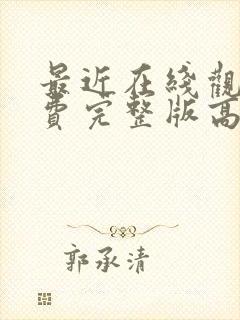 最近在綫觀
費完整版高
郭承清